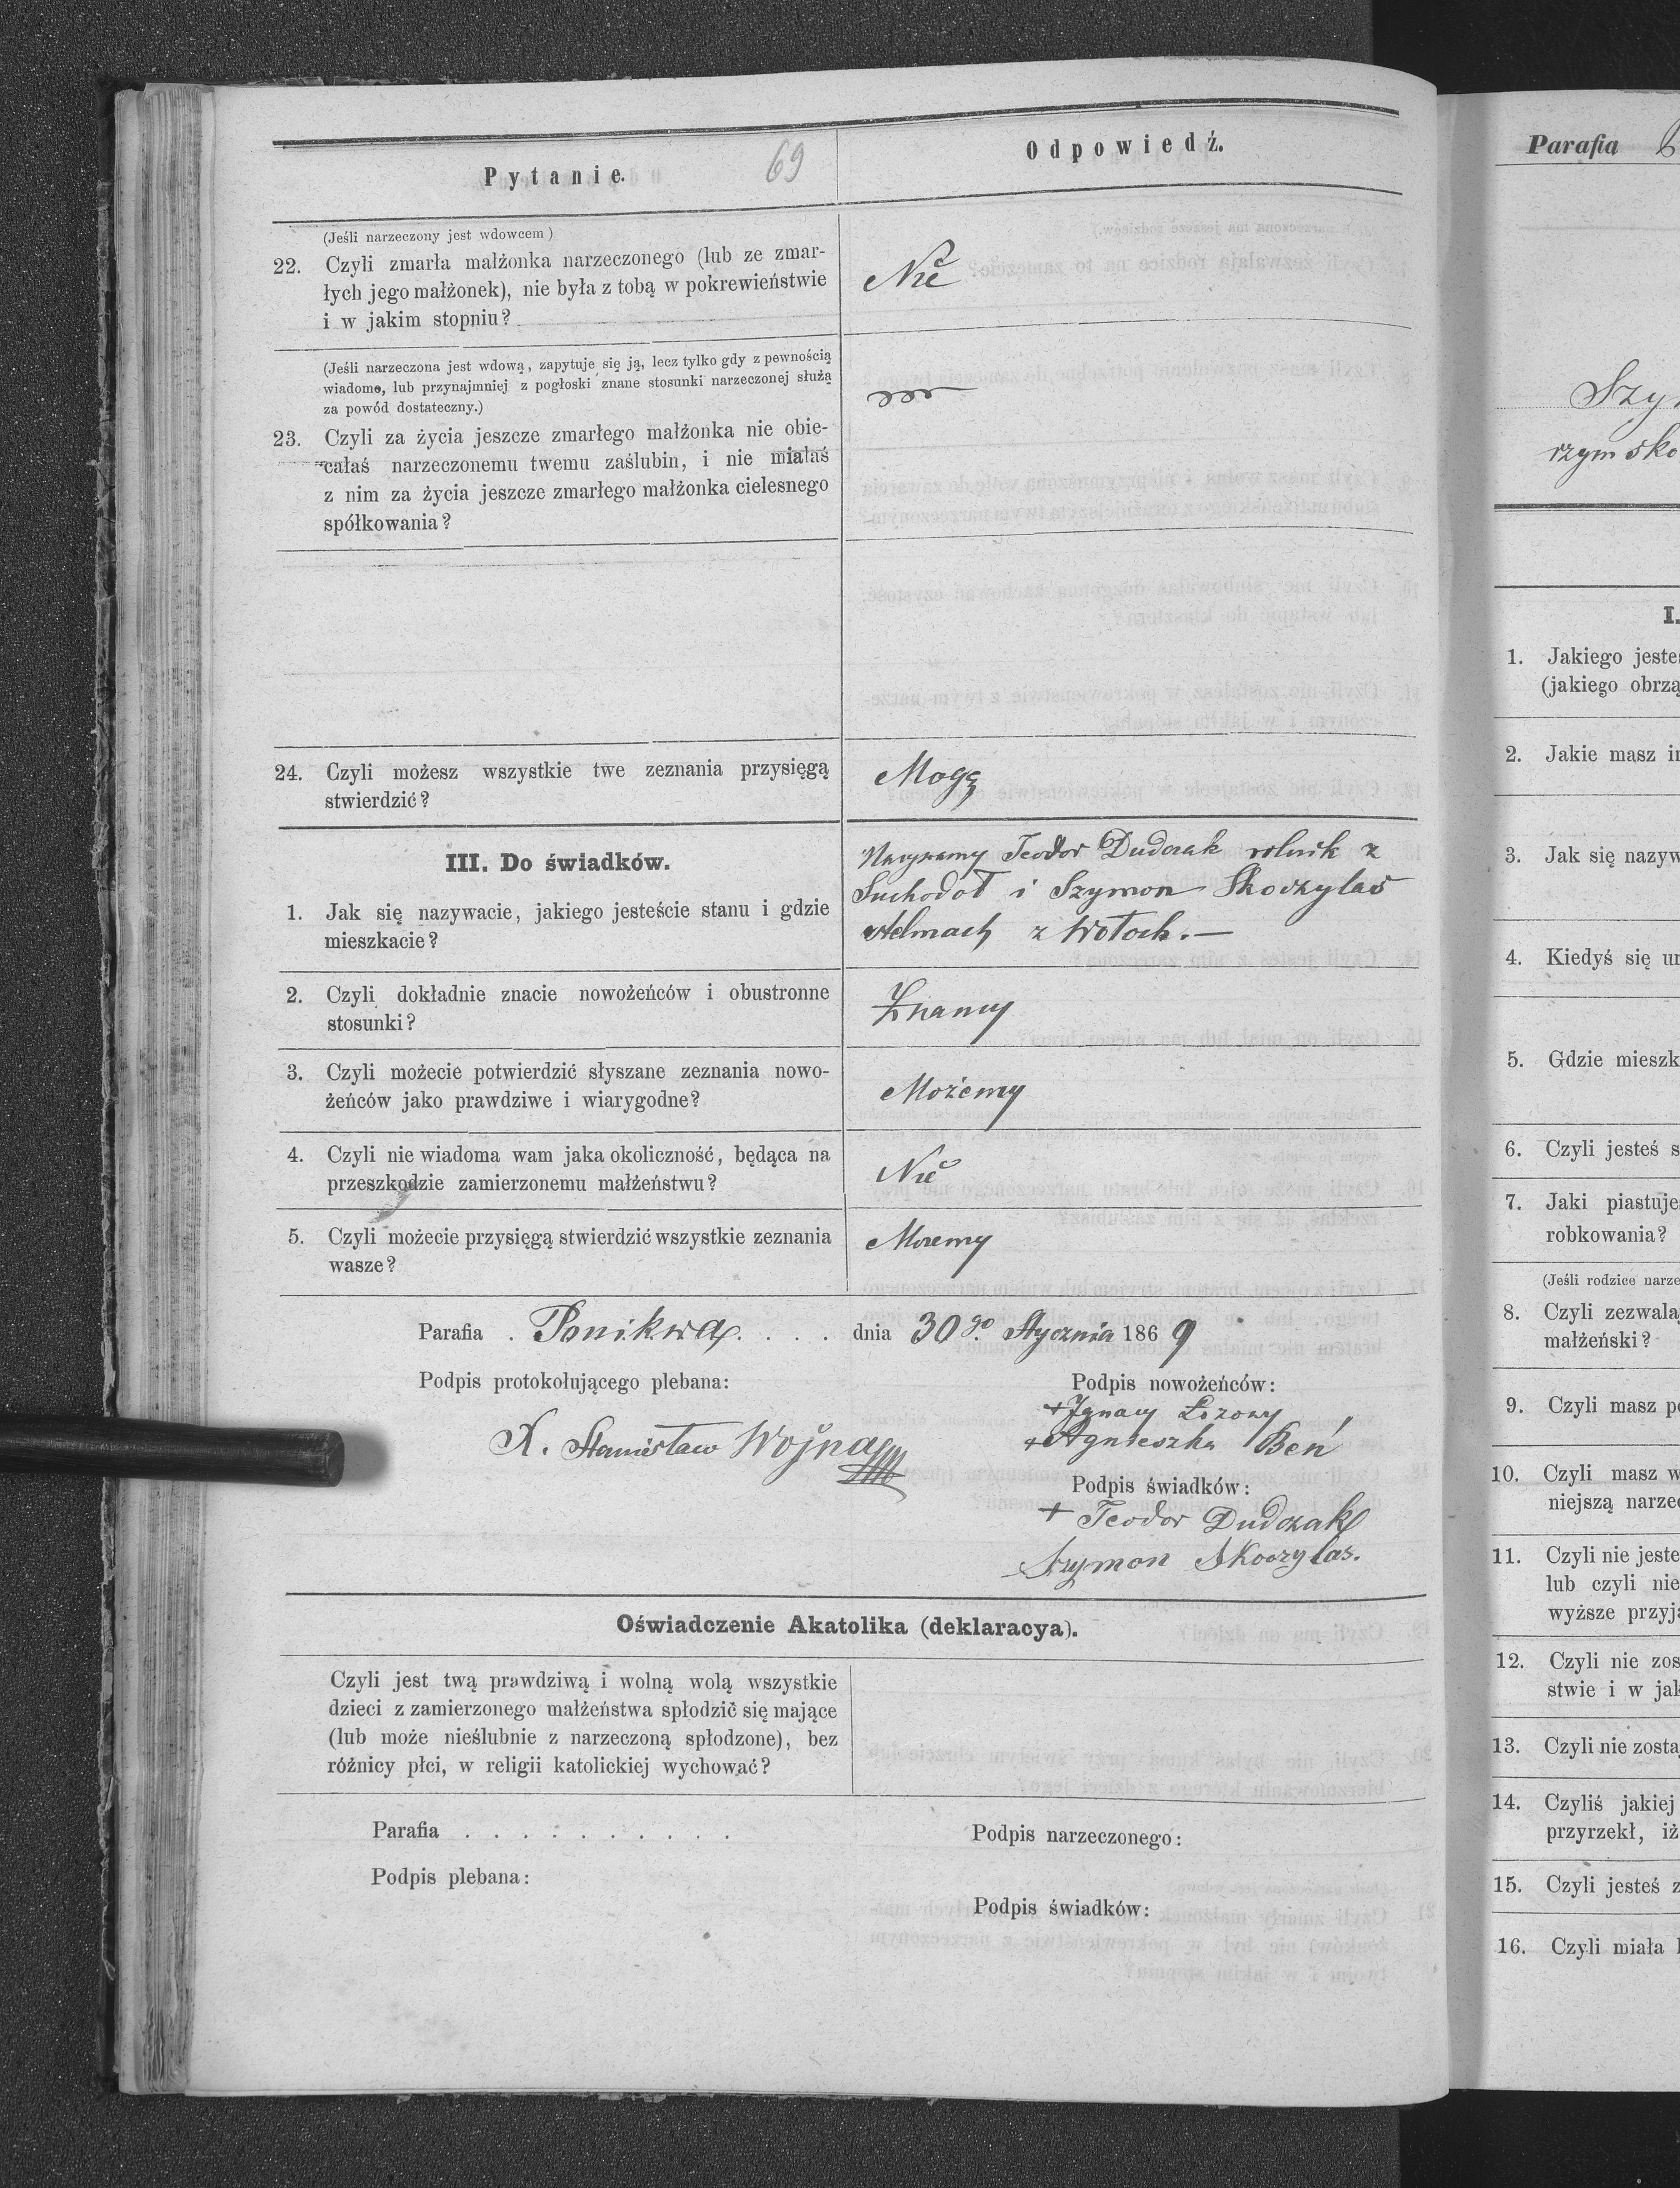 Pytanie.
69
Odpowiedź.
(Jeśli narzeczony jest wdowcem)
22. Czyli zmarła małżonka narzeczonego (lub ze zmar-
łych jego małżonek), nie była z tobą w pokrewieństwie
i w jakim stopniu?
Nie
(Jeśli narzeczona jest wdową, zapytuje się ją, lecz tylko gdy z pewnością
wiadomo, lub przynajmniej z pogłoski znane stosunki narzeczonej służą
za powód dostateczny.)
23. Czyli za życia jeszcze zmarłego małżonka nie obie-
całaś narzeczonemu twemu zaślubin, i nie miałaś
z nim za życia jeszcze zmarłego małżonka cielesnego
spółkowania?
24. Czyli możesz wszystkie twe zeznania przysięgą
stwierdzić?
Mogę
III. Do świadków.
1. Jak się nazywacie, jakiego jesteście stanu i gdzie
mieszkacie?
Teodor Dudczak rolnik z
Suchodoł i Szymon Skoczylas
z Wołoch.—
2. Czyli dokładnie znacie nowożeńców i obustronne
stosunki?
Znamy
3. Czyli możecie potwierdzić słyszane zeznania nowo-
żeńców jako prawdziwe i wiarygodne?
Możemy
4. Czyli nie wiadoma wam jaka okoliczność, będąca na
przeszkodzie zamierzonemu małżeństwu?
Nie
5. Czyli możecie przysięgą stwierdzić wszystkie zeznania
wasze?
Mozemy
Parafia . Ponikwa. . . . dnia 30go. Stycznia 1869
Podpis protokołującego plebana:
X. Stanisław Wojna
Podpis nowożeńców:
+Ignacy Łozowy
+Agnieszka Beń
Podpis świadków:
+ Teodor Dudczak
Szymon Skoczylas.
Oświadczenie Akatolika (deklaracya).
Czyli jest twą prawdziwą i wolną wolą wszystkie
dzieci z zamierzonego małżeństwa spłodzić się mające
(lub może nieślubnie z narzeczoną spłodzone), bez
różnicy płci, w religii katolickiej wychować?
Parafia . . . . . . . . . .
Podpis plebana:
Podpis narzeczonego:
Podpis świadków:
Parafia
Szy
rzymsko
I.
1. Jakiego jesteś
(jakiego obrzą
2. Jakie masz im
3. Jak się nazyw
4. Kiedyś się ur
5. Gdzie mieszk
6. Czyli jesteś s
7. Jaki piastuje
robkowania?
(Jeśli rodzice narze
8. Czyli zezwala
małżeński?
9. Czyli masz po
10. Czyli masz w
niejszą narze
11. Czyli nie jeste
lub czyli nie
wyższe przyj
12. Czyli nie zos
stwie i w jak
13. Czyli nie zosta
14. Czyliś jakiej
przyrzekł, iż
15. Czyli jesteś z
16. Czyli miała